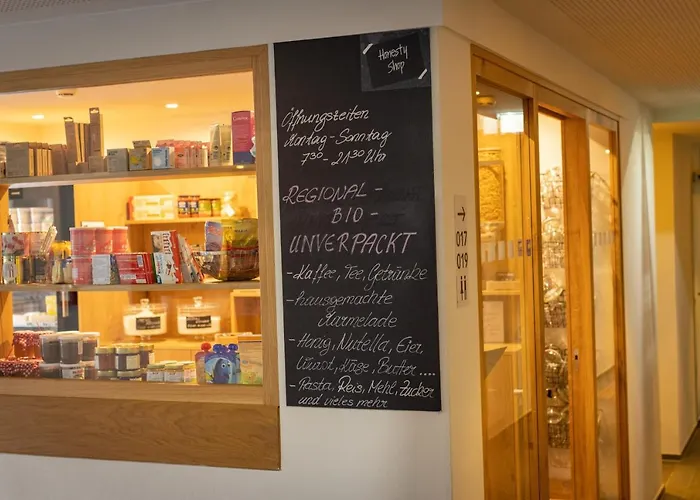 Honesty
Shop
Öffnungszeiten
Montag - Sonntag
7³⁰ - 21³⁰ Uhr
REGIONAL -
BIO -
UNVERPACKT
- Kaffee, Tee, Getränke
- hausgemachte
Marmelade
- Honig, Nutella, Eier,
Wurst, Käse, Butter ....
- Pasta, Reis, Mehl, Zucker
und vieles mehr
→
017
019